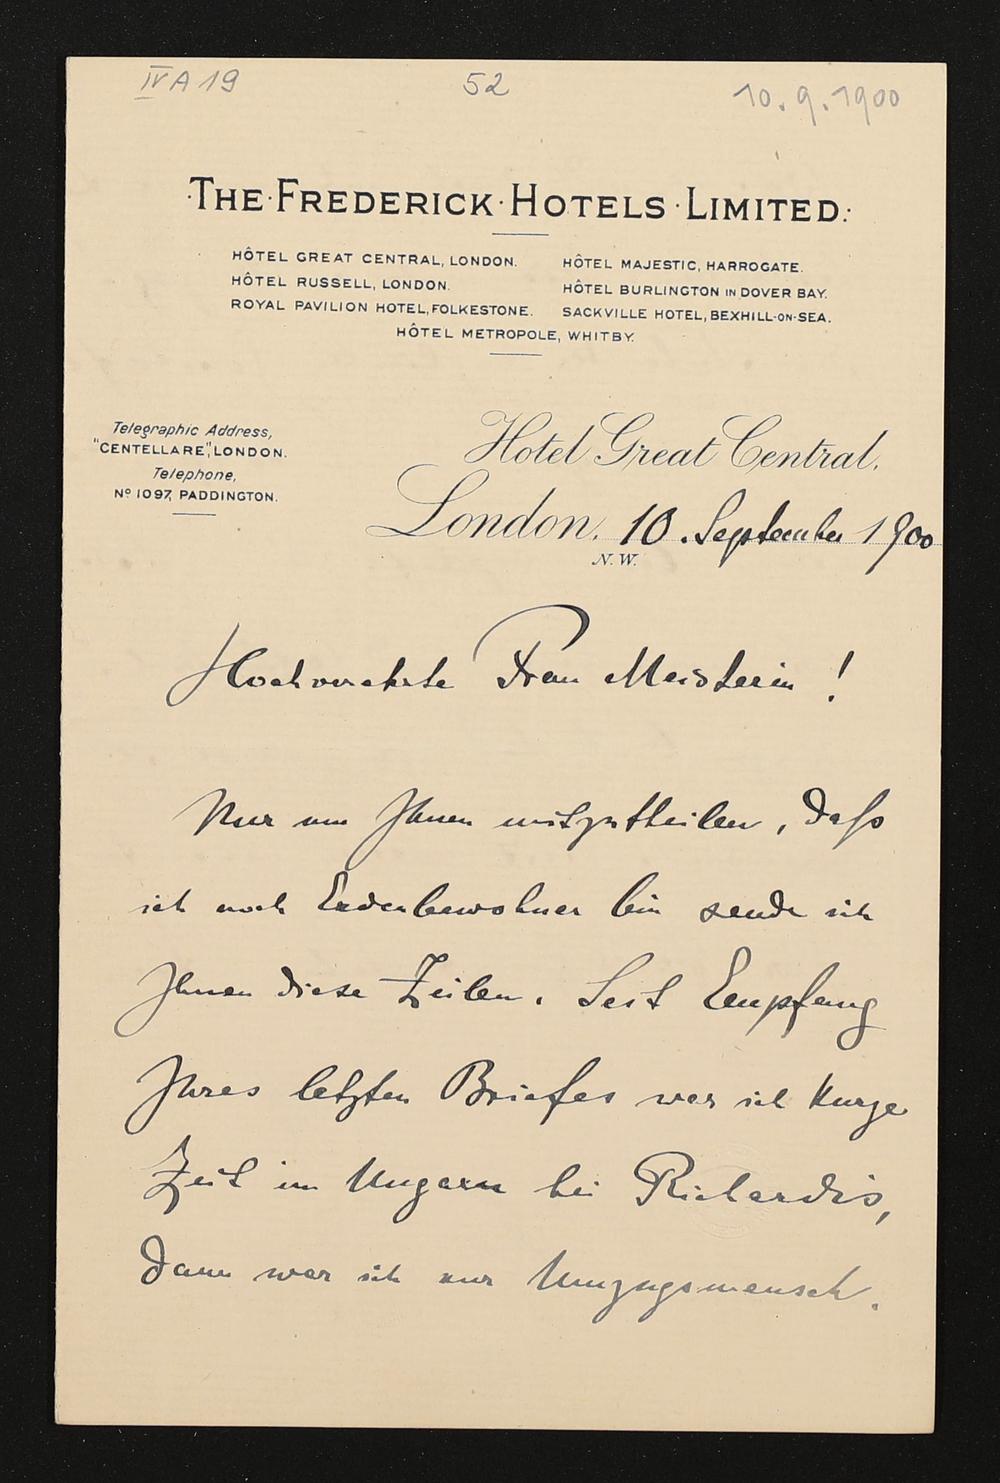 IV A 19 52 10.9.1900
·THE·FREDERICK·HOTELS·LIMITED·
HÔTEL GREAT CENTRAL, LONDON. HÔTEL MAJESTIC, HARROGATE.
HÔTEL RUSSELL, LONDON. HÔTEL BURLINGTON IN DOVER BAY.
ROYAL PAVILION HOTEL, FOLKESTONE. SACKVILLE HOTEL, BEXHILL-ON-SEA.
HÔTEL METROPOLE, WHITBY.
Telegraphic Address,
"CENTELLARE", LONDON.
Telephone,
No 1097, PADDINGTON.
Hotel Great Central,
London, 10. September 1900
N.W.
Hochverehrte Frau Meisterin!
Nur um Ihnen mitzutheilen, daß
ich noch Erdenbewohner bin sende ich
Ihnen diese Zeilen. Seit Empfang
Ihres letzten Briefes war ich kurze
Zeit in Ungarn bei Richardis,
dann war ich nur Umzugsmensch.